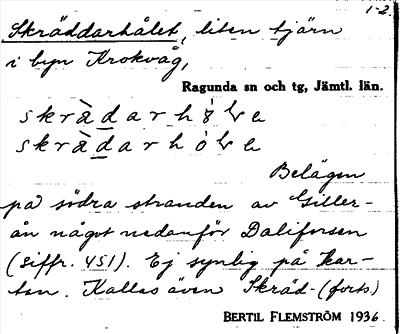 1-2.
Skräddarhålet, liten tjärn
i byn Krokvåg,
Ragunda sn och tg, Jämtl. län.
skrädarh
skrädarh
Belägen
på södra stranden av Giller-
ån något nedanför Daliforsen
(siffr. 451). Ej synlig på kar-
tan. Kallas även Skräd- (forts)
BERTIL FLEMSTRÖM 1936.